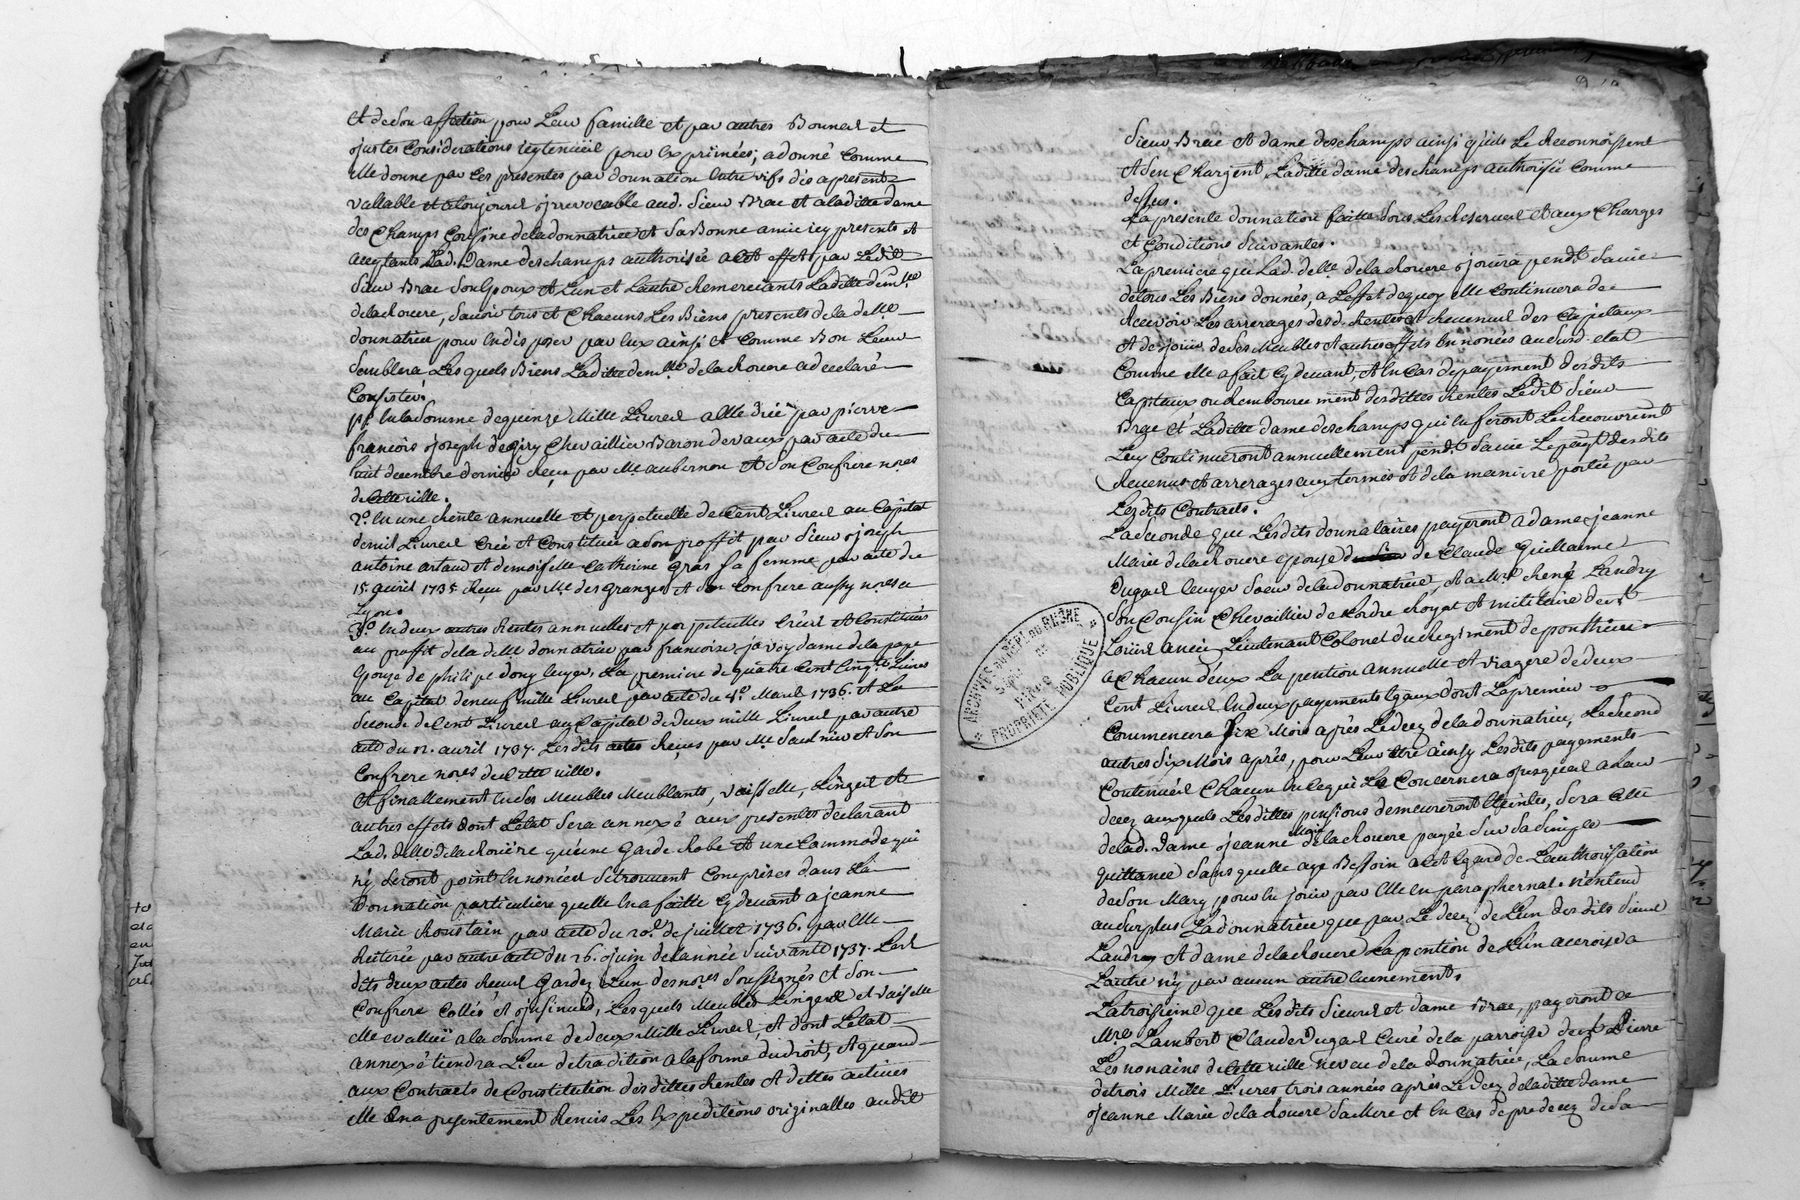 Et de son affection pour Leur famille et par autres Bonnes et
justes Considerations icy tenües pour Exprimées; a donné comme
Elle donne par Ces présentes par donnation Entre vifs dès apresent
vallable et atoujours irrevocable aud. Sieur Brac et aladitte dame
des Champs Cousine deladonnatrice et Sa Bonne amie icy presents et
acceptants Lad. Dame deschamps authorisée a Cet effet par Ledit
Sieur Brac Son Epoux et Lun et Lautre Remerciants Laditte demlle
delaRouere, Savoir tous et Chacuns Les Biens presents de la delle
donnatrice pour En disposer par Eux ainsi et Comme Bon Leur
Semblera Les quels Biens Laditte demlle de la Rouere a declaré
Consister.
po. En la Somme de quinze Mille Livres a Elle düe par pierre
françois joseph degiry Chevaillier Baron devaux par acte du
huit decembre dernier Reçu par Me aubernon et Son Confrere nores
de Cette ville.
2o. En une Rente annuelle et perpetuelle de Cent Livres au Capital
demil Livres Créé et Constituée a Son proffit par Sieur joseph
antoine artaud et demoiselle Catherine Gras Sa femme par acte du
15. avril 1735 Reçu par Me des Granges et Son Confrere aussy nores a
Lyon.
3o. En deux autres Rentes annuelles et perpetuelles Créés et Constituées
au proffit de la delle donnatrice par françoise javoy dame de la page
Epouse de philipe dony Ecuyer, La premiere de quatre Cent Cinqte Livres
au Capital de neuf mille Livres par acte du 4e. Mars 1736. et La
Seconde de Cent Livres au Capital de deux mille Livres par autre
acte du 12. avril 1737. Lesdits actes Reçus par Me Saulnier et Son
Confrere nores de Cette ville.
Et finallement En des Meubles Meublants, vaisselle, Linges et
autres effets dont L'etat Sera annexé aux presentes declarant
Lad. delle de la Roüere qu'une Garde Robe et une Commode qui
n'y Seront point Enoncées Setrouvent Comprises dans La
Donnation particuliere quelle En a faitte Cy devant a jeanne
Marie Roustain par acte du 20e. de juillet 1736. par Elle
Reiterée par autre acte du 26. juin de la année Suivante 1737. Les
dits deux actes Reçus Gardez Lun des nores Soussignés et Son
Confrere Collés et jnsinués, Lesquels Meubles Linges et vaisselle
Elle evalluë a la Somme de deux Mille Livres, et dont Letat
annexé tiendra Lieu detradition a la forme du droit, et quand
aux Contracts de Constitution des dittes Rentes et dettes actives
Elle En a presentement Remis Les Expeditions originalles audit
Sieur Brac et dame deschamps ainsi qu'ils Le Reconnoissent
et Sen Chargent, Laditte dame deschamps authorisée Comme
dessus.
La presente donnation faitte Sous Les Reserves et aux Charges
et Conditions Suivantes.
La premiere que Lad. delle de la Rouere joüira pendt Sa vie
de tous Les Biens donnés, a L'effet de quoy Elle Continuera de
Recevoir Les arrerages desd. Rentes et Revenus des Capitaux
et de joüir de Ses Meubles et autres effets Enoncés au Susd. etat
Comme Elle a fait Cy devant, et En Cas de payement desdits
Capitaux ou Remboursement desdittes Rentes Ledit Sieur
Brac et Laditte dame deschamps qui En feront Le Recouvremt
Luy Continueront annuellement pendt Sa vie Le payt desdits
Revenus et arrerages aux termes et de la maniere portée par
Lesdits Contracts.
La Seconde que Lesdits donnataires payeront a dame jeanne
Marie delaRouere epouse de Claude Guillaume
Dugad Ecuyer Soeur de la donnatrice, et a Mre René Landry
Son Cousin Chevaillier de Lordre Royal et Militaire de St
Loüis ancien Lieutenant Colonel du Regiment de ponthieure
a Chacun d'eux La pention annuelle et viagere de deux
Cent Livres En deux payements Egaux dont Le premier
Commencera Six Mois aprés Le decez de la donnatrice, Le Second
autres Six Mois aprés, pour Leur être ainsy Lesdits payements
Continués Chacun En Ce qui Le Concernera jusques a Leur
decez auxquels Lesdittes pensions demeureront Eteintes, Sera Celle
delad. Dame jeanne Marie delaRouere payée Sur Sa Simple
quittance Sans quelle aye Bessoin a Cet Egard de L'authorisation
de Son Mary pour En joüir par Elle En paraphernal. N'entend
au Surplus La donnatrice que par Le decez de Lun des dits Sieur
Landry et dame de la Rouere La pention de L'un accroisse a
Lautre n'y par aucun autre Evenement.
La troisieme que Lesdits Sieurs et dame Brac, payeront a
Mre. Lambert Claude Dugad Curé de la parroisse de St Pierre
Les nonains de Cette ville neveu de la Donnatrice, La Somme
de trois Mille Livres trois années après Le decez de la ditte dame
jeanne Marie de la Rouere Sa Mere et En Cas de predecez de Sa
ARCHIVES DU DEPT. DU RHONE
PROPRIETE PUBLIQUE